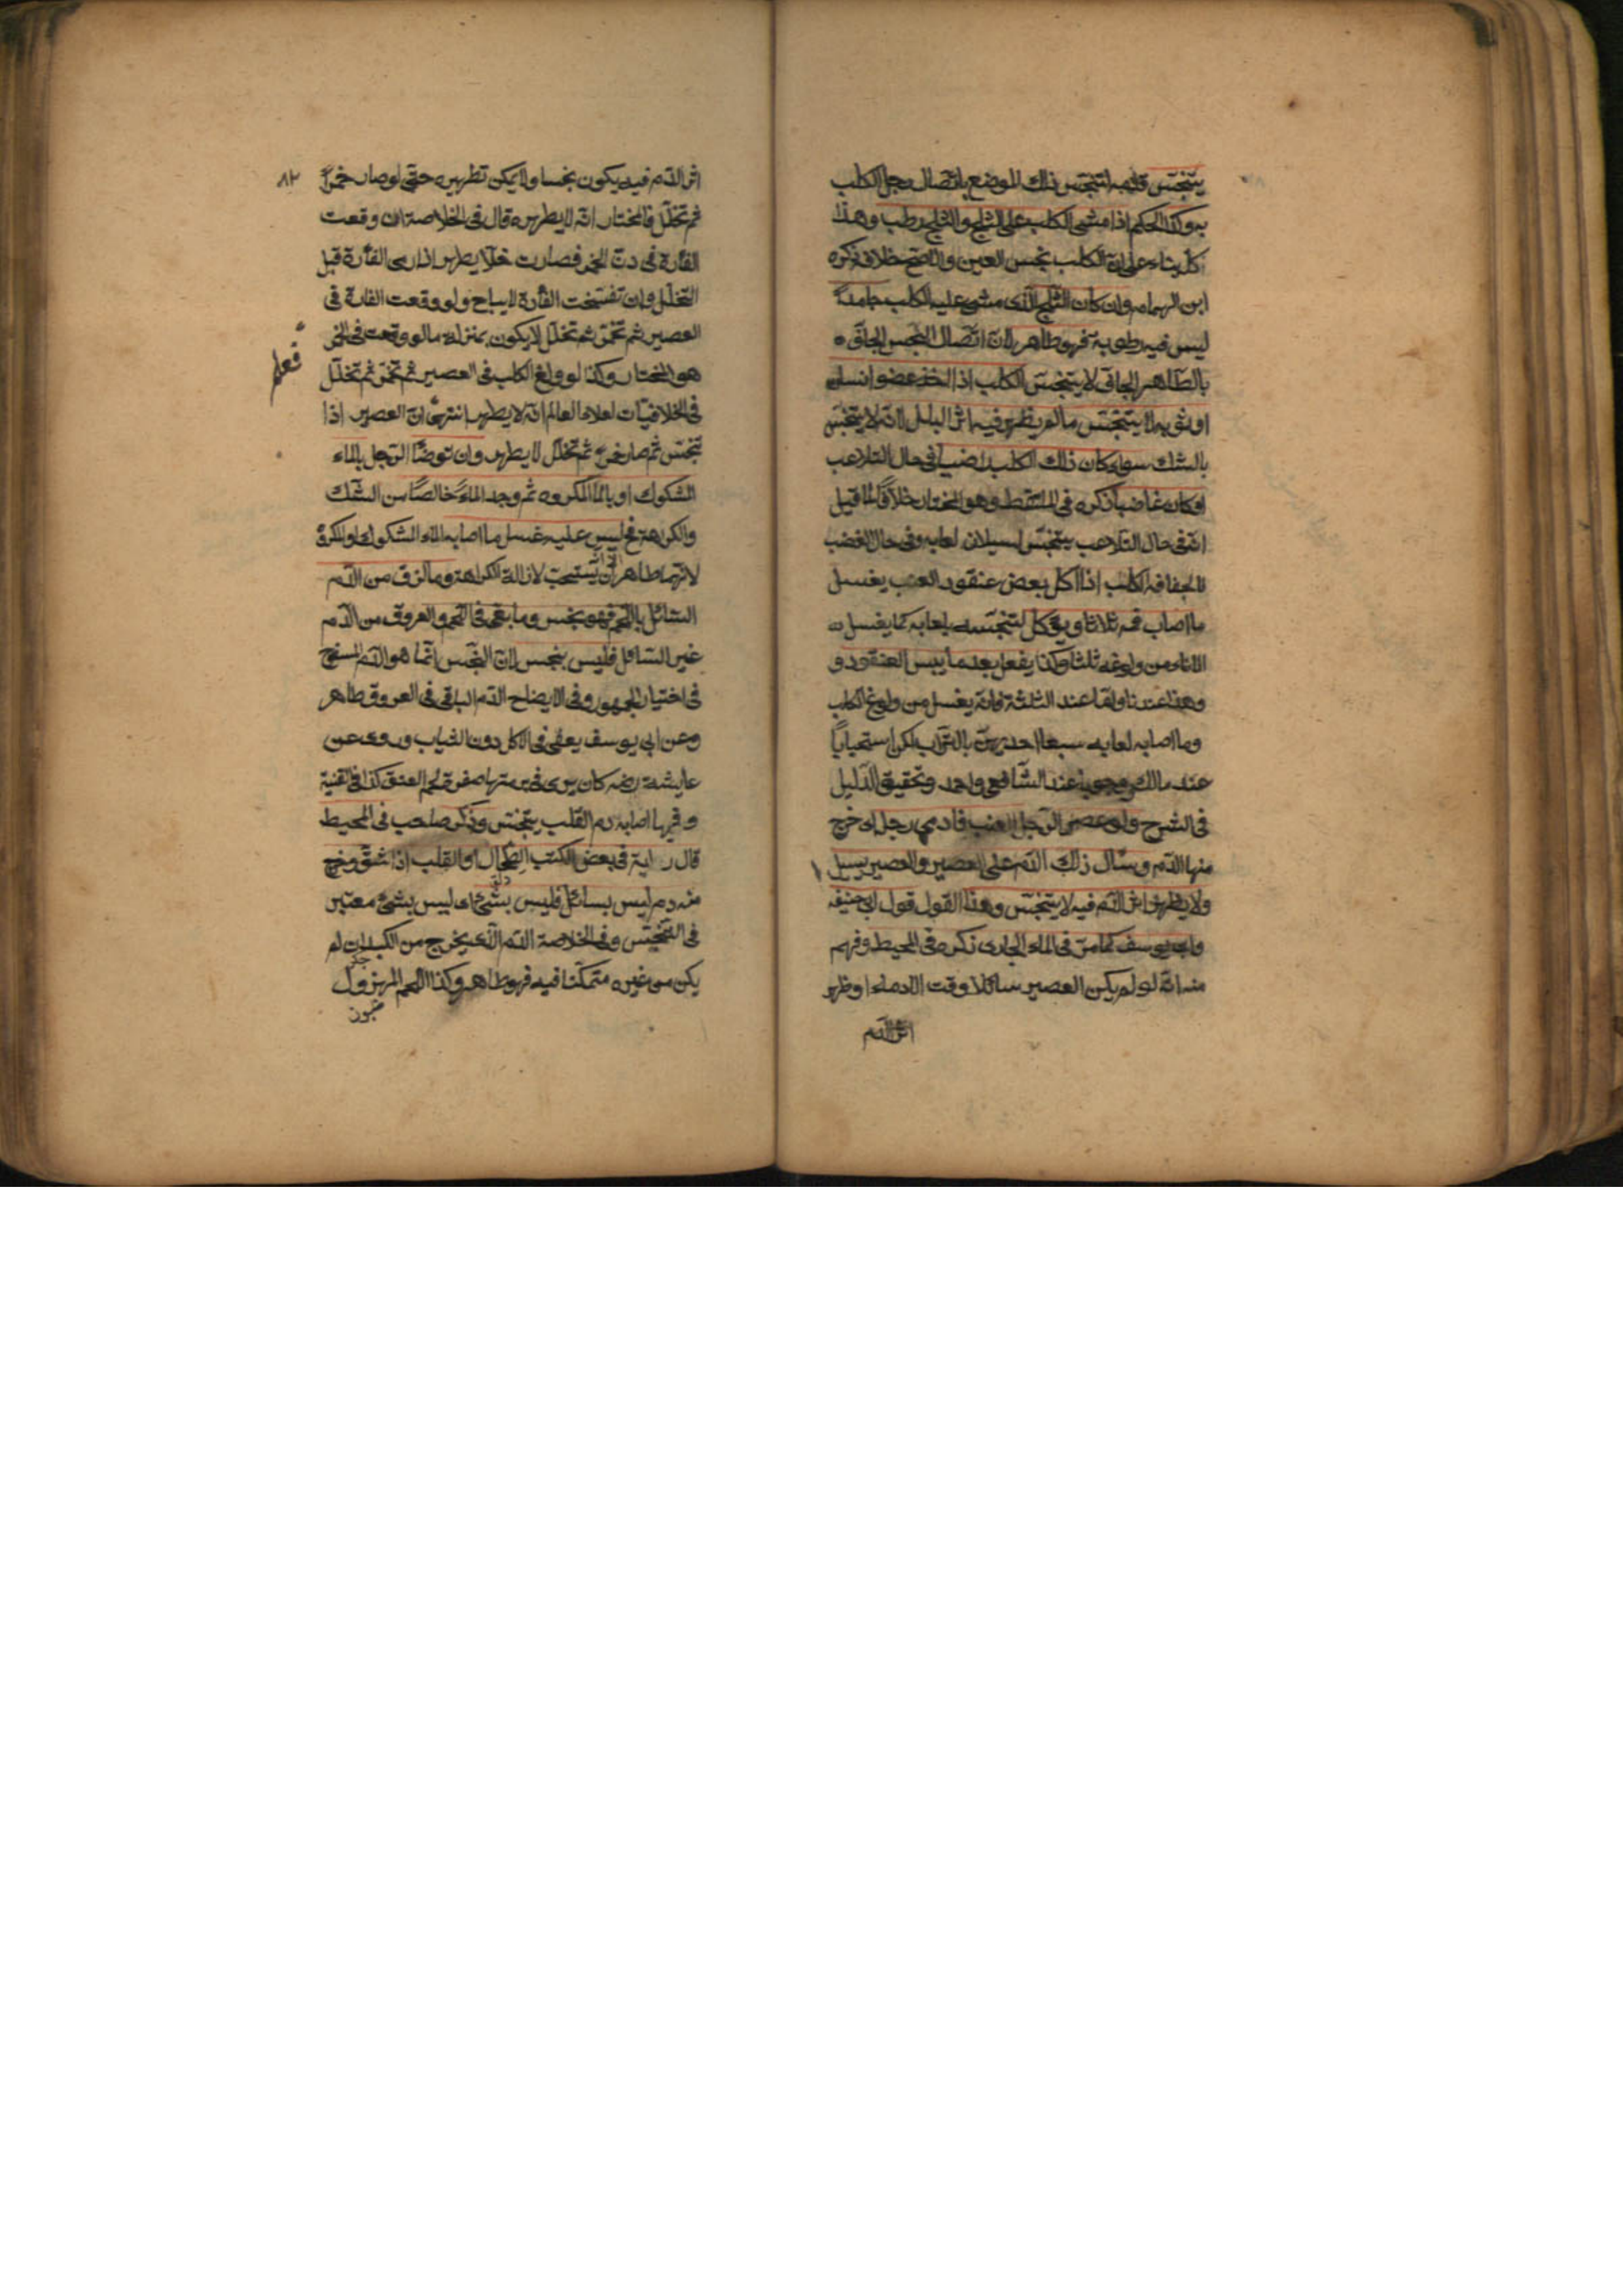 يتنجّس قدمه لتنجّس ذلك الموضع باتّصال رجل الكلب
به وكذا الحكم اذا مشى الكلب على الثلج والثلج رطب وهذا
كلّه بناء على انّ الكلب نجس العين والاصحّ خلافه ذكره
ابن الهمام وان كان الثلج الّذى مشى عليه الكلب جامداً
ليس فيه رطوبة فهو طاهر لانّ اتّصال النّجس الجافّ
بالطّاهر الجافّ لا يتنجّس الكلب اذا اخذ عضو انسان
او ثوبه لا يتنجّس ما لم يظهر فيه اثر البلل لانّه لا يتنجّس
بالشك سواء كان ذلك الكلب راضياً فى حال التلاعب
او كان غاضباً ذكره فى الملتقط وهو المختار خلافاً لما قيل
انّه فى حال التلاعب يتنجّس لسيلان لعابه وفى حال الغضب
لا لجفافه الكلب اذا اكل بعض عنقود العنب يغسل
ما اصاب فمه ثلاثا ويؤكل لتنجّسه بلعابه كما يغسل
الاناء من ولوغه ثلثا وكذا يفعل بعد ما يبس العنقود و
وهذا عندنا وامّا عند الثلثة فانّه يغسل من ولوغ الكلب
وما اصابه لعابه سبعا احديهنّ بالتراب لكن استحباباً
عند مالك ووجوباً عند الشّافعى واحمد وتحقيق الدّليل
فى الشرح ولو عصر الرّجل العنب فادمى رجله اى خرج
منها الدّم وسال ذلك الدّم على العصير والعصير يسيل
ولا يظهر اثر الدّم فيه لا يتنجّس وهذا القول قول ابى حنيفه
وابى يوسف كما مرّ فى الماء الجارى ذكره فى المحيط وفهم
منه انّه لو لم يكن العصير سائلا وقت الادماء او ظهر
اثر الدّم
٨٢
اثر الدّم فيه يكون نجسا ولا يمكن تطهيره حتّى لو صار خمراً
ثم تخلّل فالمختار انّه لا يطهر قال فى الخلاصة ان وقعت
الفأرة فى دنّ الخمر فصارت خلاّ يطهر اذا رمى الفأرة قبل
التخلّل وان تفسّخت الفأرة لا يباح ولو وقعت الفارة فى
العصير ثم تخمّر ثم تخلّل لا يكون بمنزلة ما لو وقعت فى الخمر
هو المختار وكذا لو ولغ الكلب فى العصير ثم تخمّر ثم تخلّل
فى الخلافيّات لعلاء العالم انّه لا يطهر انتهى انّ العصير اذا
تنجّس ثم صار خمرا ثم تخلّل لا يطهر وان توضّأ الرّجل بالماء
المشكوك او بالماء المكروه ثم وجد الماء خالصاً من الشّك
والكراهة فليس عليه غسل ما اصابه الماء المشكوك او المكروه
لانّهما طاهران الّا انّه يستحبّ لازالة الكراهة وما لزق من الدّم
السّائل باللّحم فهو نجس وما بقى فى اللّحم والعروق من الدّم
غير السّائل فليس بنجس لانّ النّجس انّما هو الدّم المسفوح
فى اختيار الجمهور وفى الايضاح الدّم الباقى فى العروق طاهر
وعن ابى يوسف يعفى فى الاكل دون الثياب وروى عن
عايشة رضه كان يرى فى برمتها صفرة لحم العنق كذا فى القنية
وفيها اصابه دم القلب يتنجّس وذكر صاحب فى المحيط
قال راية فى بعض الكتب الطّحال او القلب اذا شقّ وخرج
منه دم ليس بسائل فليس بشئ اى ليس بشئ معتبر
فى التّنجيس وفى الخلاصة الدّم الّذى يخرج من الكبد ان لم
يكن من غيره متمكّنا فيه فهو طاهر وكذا اللّحم المهزول